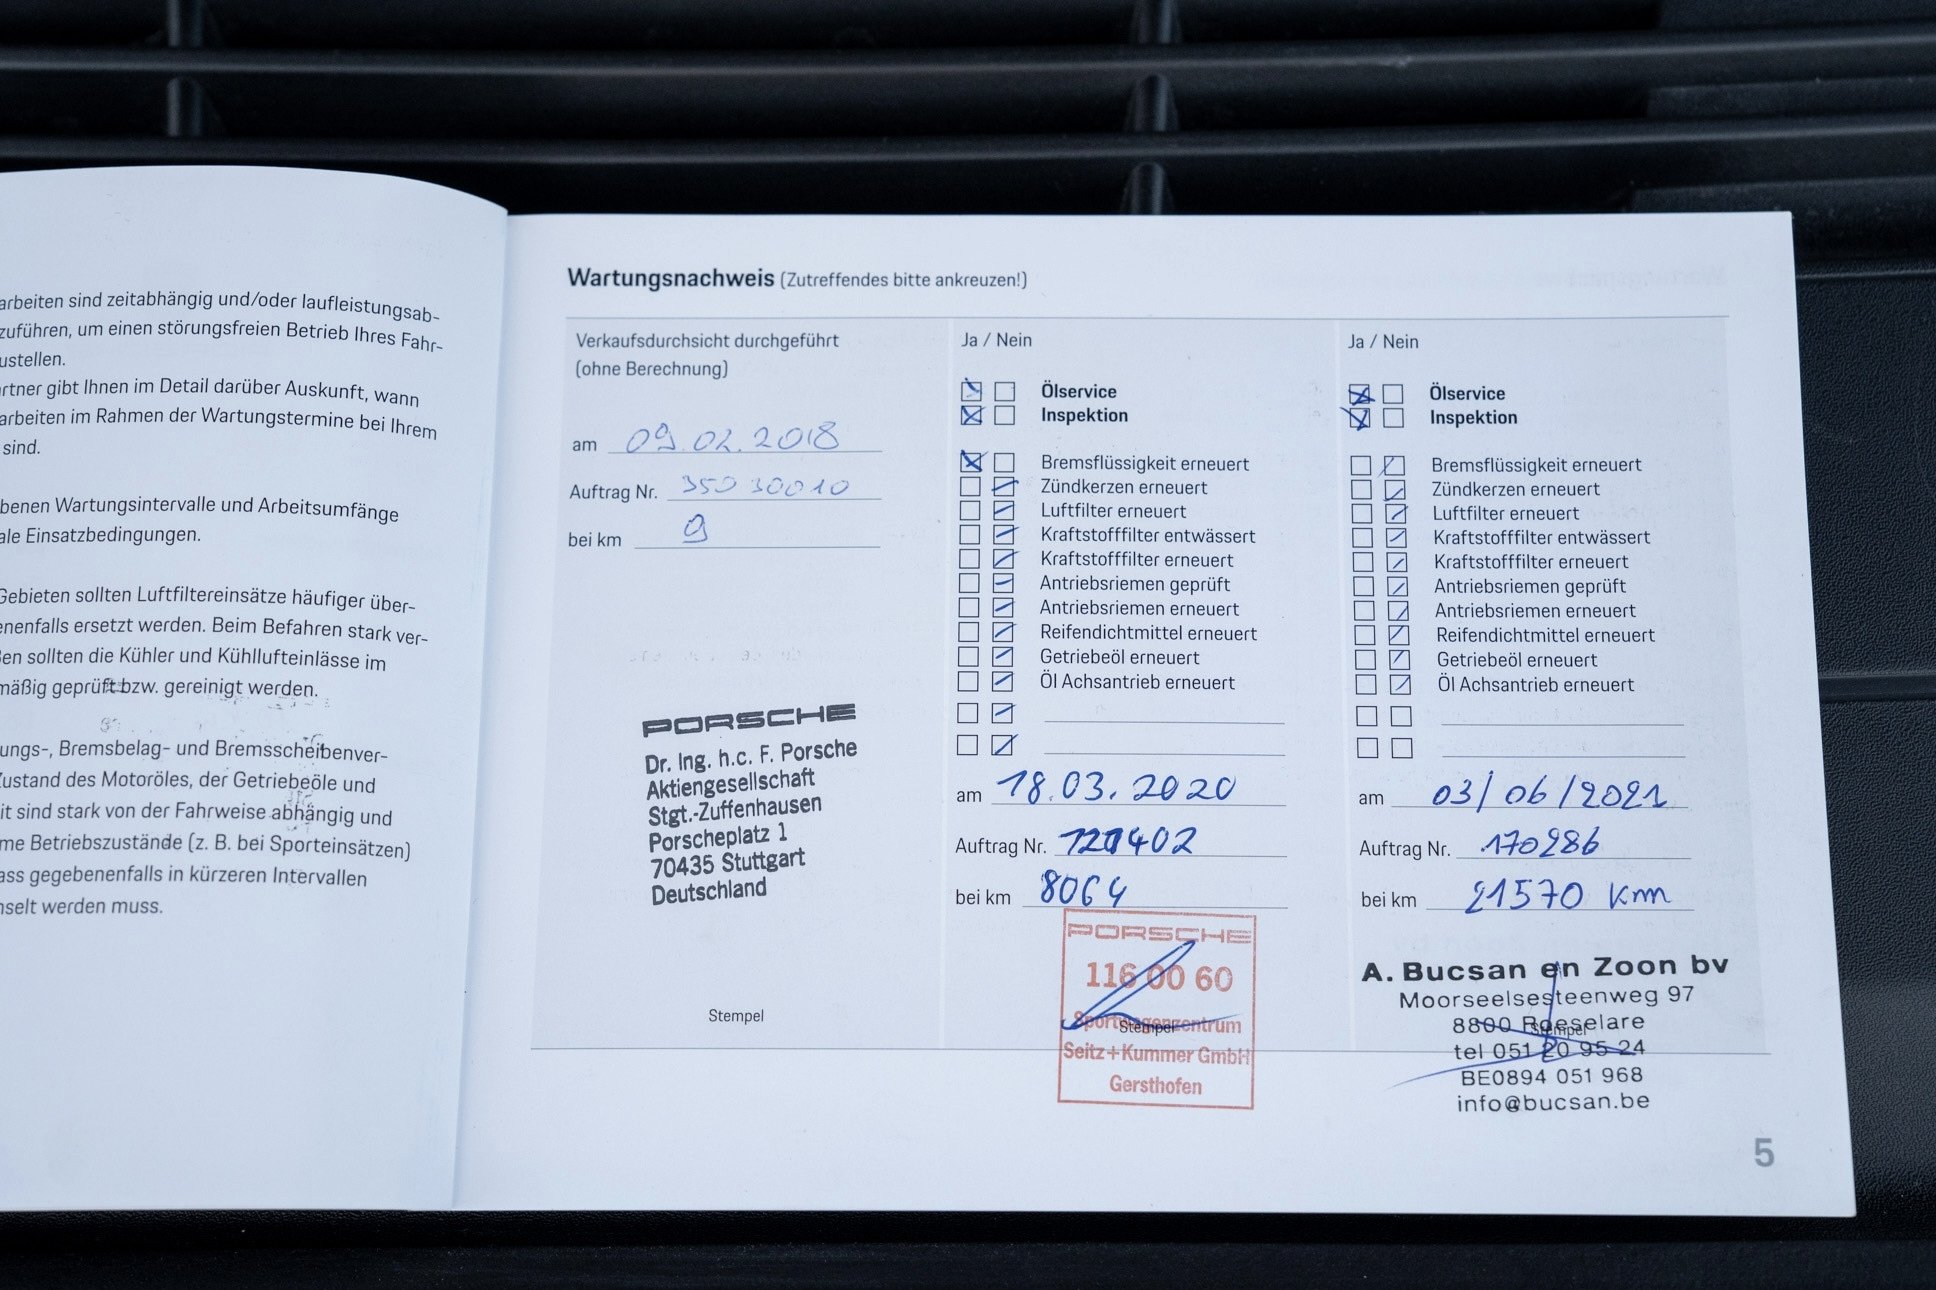 arbeiten sind zeitabhängig und/oder laufleistungsab-
zuführen, um einen störungsfreien Betrieb Ihres Fahr-
ustellen.
rtner gibt Ihnen im Detail darüber Auskunft, wann
arbeiten im Rahmen der Wartungstermine bei Ihrem
sind.
benen Wartungsintervalle und Arbeitsumfänge
ale Einsatzbedingungen.
Gebieten sollten Luftfiltereinsätze häufiger über-
enenfalls ersetzt werden. Beim Befahren stark ver-
ßen sollten die Kühler und Kühllufteinlässe im
mäßig geprüft bzw. gereinigt werden.
ungs-, Bremsbelag- und Bremsscheibenver-
Zustand des Motoröles, der Getriebeöle und
it sind stark von der Fahrweise abhängig und
me Betriebszustände (z. B. bei Sporteinsätzen)
ass gegebenenfalls in kürzeren Intervallen
hselt werden muss.
Wartungsnachweis (Zutreffendes bitte ankreuzen!)
Verkaufsdurchsicht durchgeführt
(ohne Berechnung)
am 09.02.2018
Auftrag Nr. 35030010
bei km 9
PORSCHE
Dr. Ing. h.c. F. Porsche
Aktiengesellschaft
Stgt.-Zuffenhausen
Porscheplatz 1
70435 Stuttgart
Deutschland
Stempel
Ja / Nein
Ölservice
Inspektion
Bremsflüssigkeit erneuert
Zündkerzen erneuert
Luftfilter erneuert
Kraftstofffilter entwässert
Kraftstofffilter erneuert
Antriebsriemen geprüft
Antriebsriemen erneuert
Reifendichtmittel erneuert
Getriebeöl erneuert
Öl Achsantrieb erneuert
am 18.03.2020
Auftrag Nr.
bei km 8064
PORSCHE
116 00 60
Sportwagenzentrum
Stempel
Seitz+Kummer GmbH
Gersthofen
Ja / Nein
Ölservice
Inspektion
Bremsflüssigkeit erneuert
Zündkerzen erneuert
Luftfilter erneuert
Kraftstofffilter entwässert
Kraftstofffilter erneuert
Antriebsriemen geprüft
Antriebsriemen erneuert
Reifendichtmittel erneuert
Getriebeöl erneuert
Öl Achsantrieb erneuert
am 03/06/2021
Auftrag Nr. 170286
bei km 21570 km
A. Bucsan en Zoon bv
Moorseelsesteenweg 97
8800 Roeselare
Stempel
tel 051 20 95 24
BE0894 051 968
info@bucsan.be
5